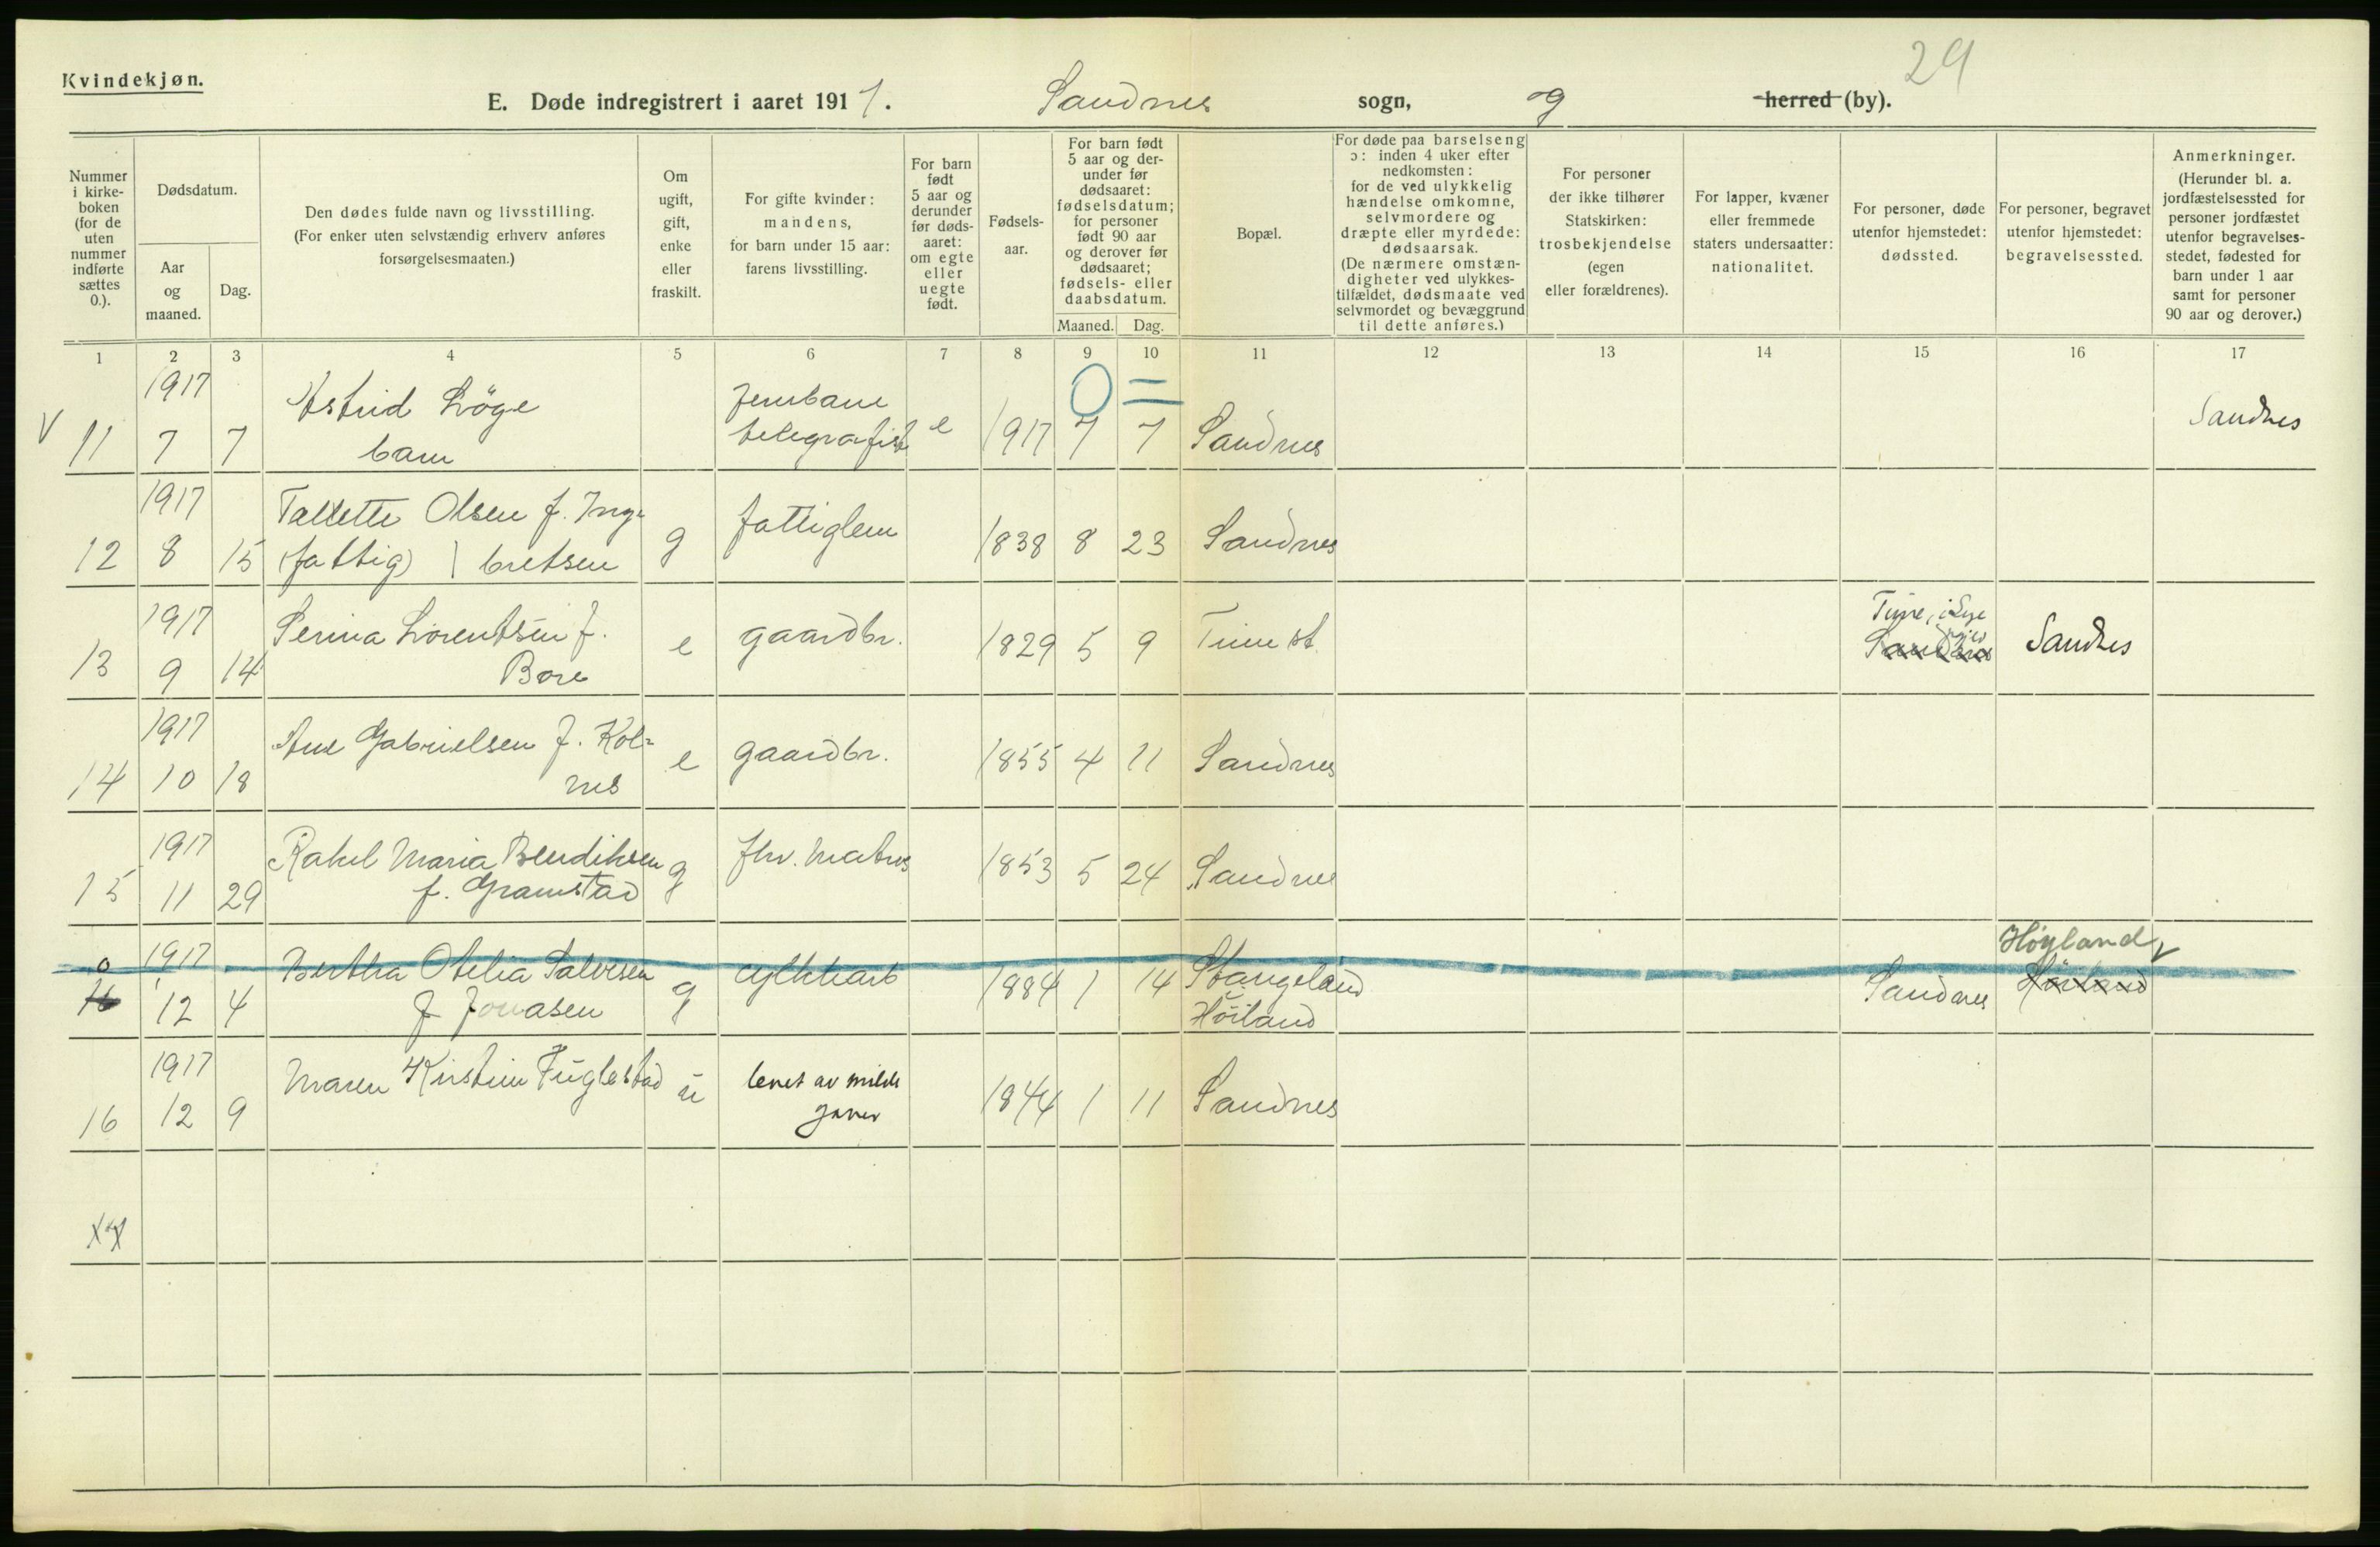 29
Kvindekjøn.
E. Døde indregistrert i aaret 1917. Sandnes sogn, og herred (by).
Nummer i kirke-boken (for de uten nummer indførte sættes 0.).
Dødsdatum.
Aar og maaned.
Dag.
Den dødes fulde navn og livsstilling.
(For enker uten selvstændig erhverv anføres
forsørgelsesmaaten.)
Om ugift, gift, enke eller fraskilt.
For gifte kvinder: mandens, for barn under 15 aar: farens livsstilling.
For barn født 5 aar og derunder før døds-aaret: om egte eller uegte født.
Fødsels-aar.
For barn født 5 aar og der-under før dødsaaret: fødselsdatum; for personer født 90 aar og derover før dødsaaret; fødsels- eller daabsdatum.
Maaned. Dag.
Bopæl.
For døde paa barselseng ɔ: inden 4 uker efter nedkomsten: for de ved ulykkelig hændelse omkomne, selvmordere og dræpte eller myrdede: dødsaarsak. (De nærmere omstæn-digheter ved ulykkes-tilfældet, dødsmaate ved selvmordet og bevæggrund til dette anføres.)
For personer der ikke tilhører Statskirken: trosbekjendelse (egen eller forældrenes).
For lapper, kvæner eller fremmede staters undersaatter: nationalitet.
For personer, døde utenfor hjemstedet: dødssted.
For personer, begravet utenfor hjemstedet: begravelsessted.
Anmerkninger. (Herunder bl. a. jordfæstelsessted for personer jordfæstet utenfor begravelses-stedet, fødested for barn under 1 aar samt for personer 90 aar og derover.)
1 2 3 4 5 6 7 8 9 10 11 12 13 14 15 16 17
V 1917 Astrid Löge Jernbane 0 = Sandnes
11 7 7 barn telegrafist e 1917 7 7 Sandnes
1917 Tallette Olsen f. Inge
12 8 15 (fattig) | bretsen g fattiglem 1838 8 23 Sandnes
1917 Serina Lorentsen f. Time, i Lye
13 9 14 Bore e gaardbr. 1829 5 9 Time st. Sandnes Sandnes
1917 Ane Gabrielsen f. Kol-
14 10 18 nes e gaardbr. 1855 4 11 Sandnes
1917 Rakel Maria Bendiksen
15 11 29 f. Gramstad g fhv. Matros 1853 5 24 Sandnes
0 1917 Bertha Otelia Salvesen cyklearb Stangeland Høyland V
16 12 4 f Jonasen g 1884 1 14 Höiland Sandnes Höiland
1917 Maren Kirstine Fuglestad levet av milde
16 12 9 u gaver 1844 1 11 Sandnes
17